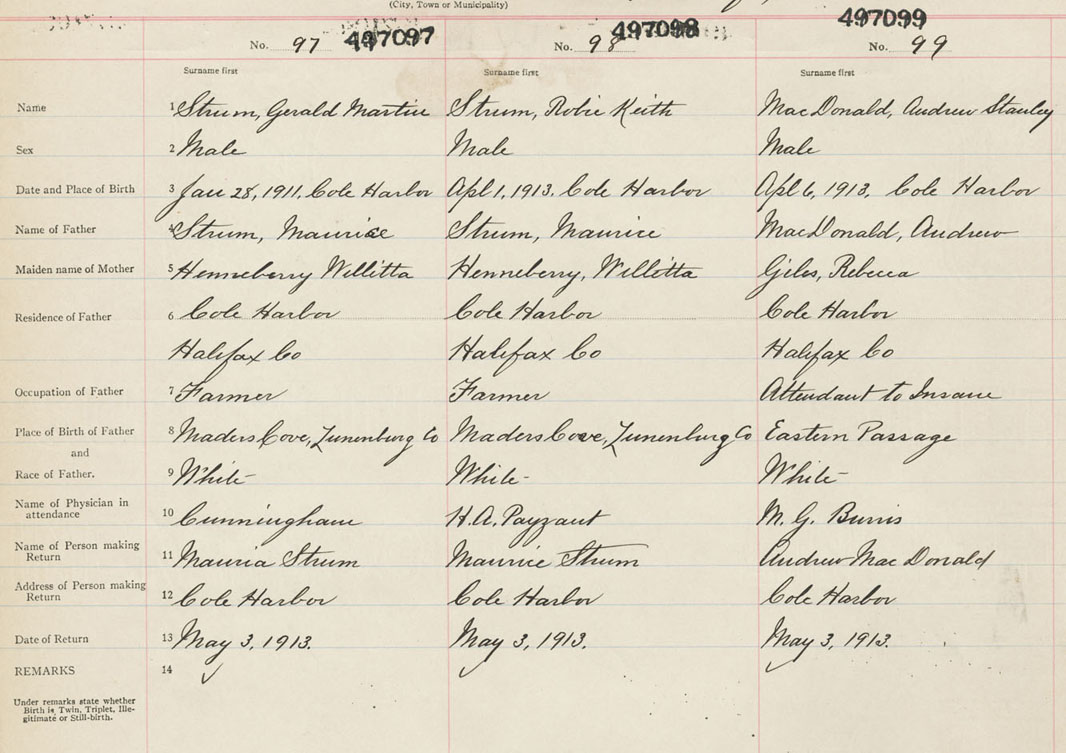 (City, Town or Municipality)
No. 97 497097 No. 98 497098 No. 99 497099
Surname first Surname first Surname first
Name 1 Strum, Gerald Martin Strum, Robie Keith MacDonald, Andrew Stanley
Sex 2 Male Male Male
Date and Place of Birth 3 Jan 28, 1911. Cole Harbor Apl 1, 1913. Cole Harbor Apl 6, 1913. Cole Harbor
Name of Father 4 Strum, Maurice Strum, Maurice MacDonald, Andrew
Maiden name of Mother 5 Henneberry Willitta Henneberry, Willitta Giles, Rebecca
Residence of Father 6 Cole Harbor Cole Harbor Cole Harbor
Halifax Co Halifax Co Halifax Co
Occupation of Father 7 Farmer Farmer Attendant to Insane
Place of Birth of Father 8 Maders Cove, Lunenburg Co Maders Cove, Lunenburg Co Eastern Passage
and
Race of Father. 9 White White White
Name of Physician in
attendance 10 Cunningham H.A. Payzant M. G. Burris
Name of Person making
Return 11 Strum Maurice Strum Andrew MacDonald
Address of Person making
Return 12 Cole Harbor Cole Harbor Cole Harbor
Date of Return 13 May 3, 1913. May 3, 1913. May 3, 1913.
REMARKS 14
Under remarks state whether
Birth is Twin, Triplet, Ille-
gitimate or Still-birth.